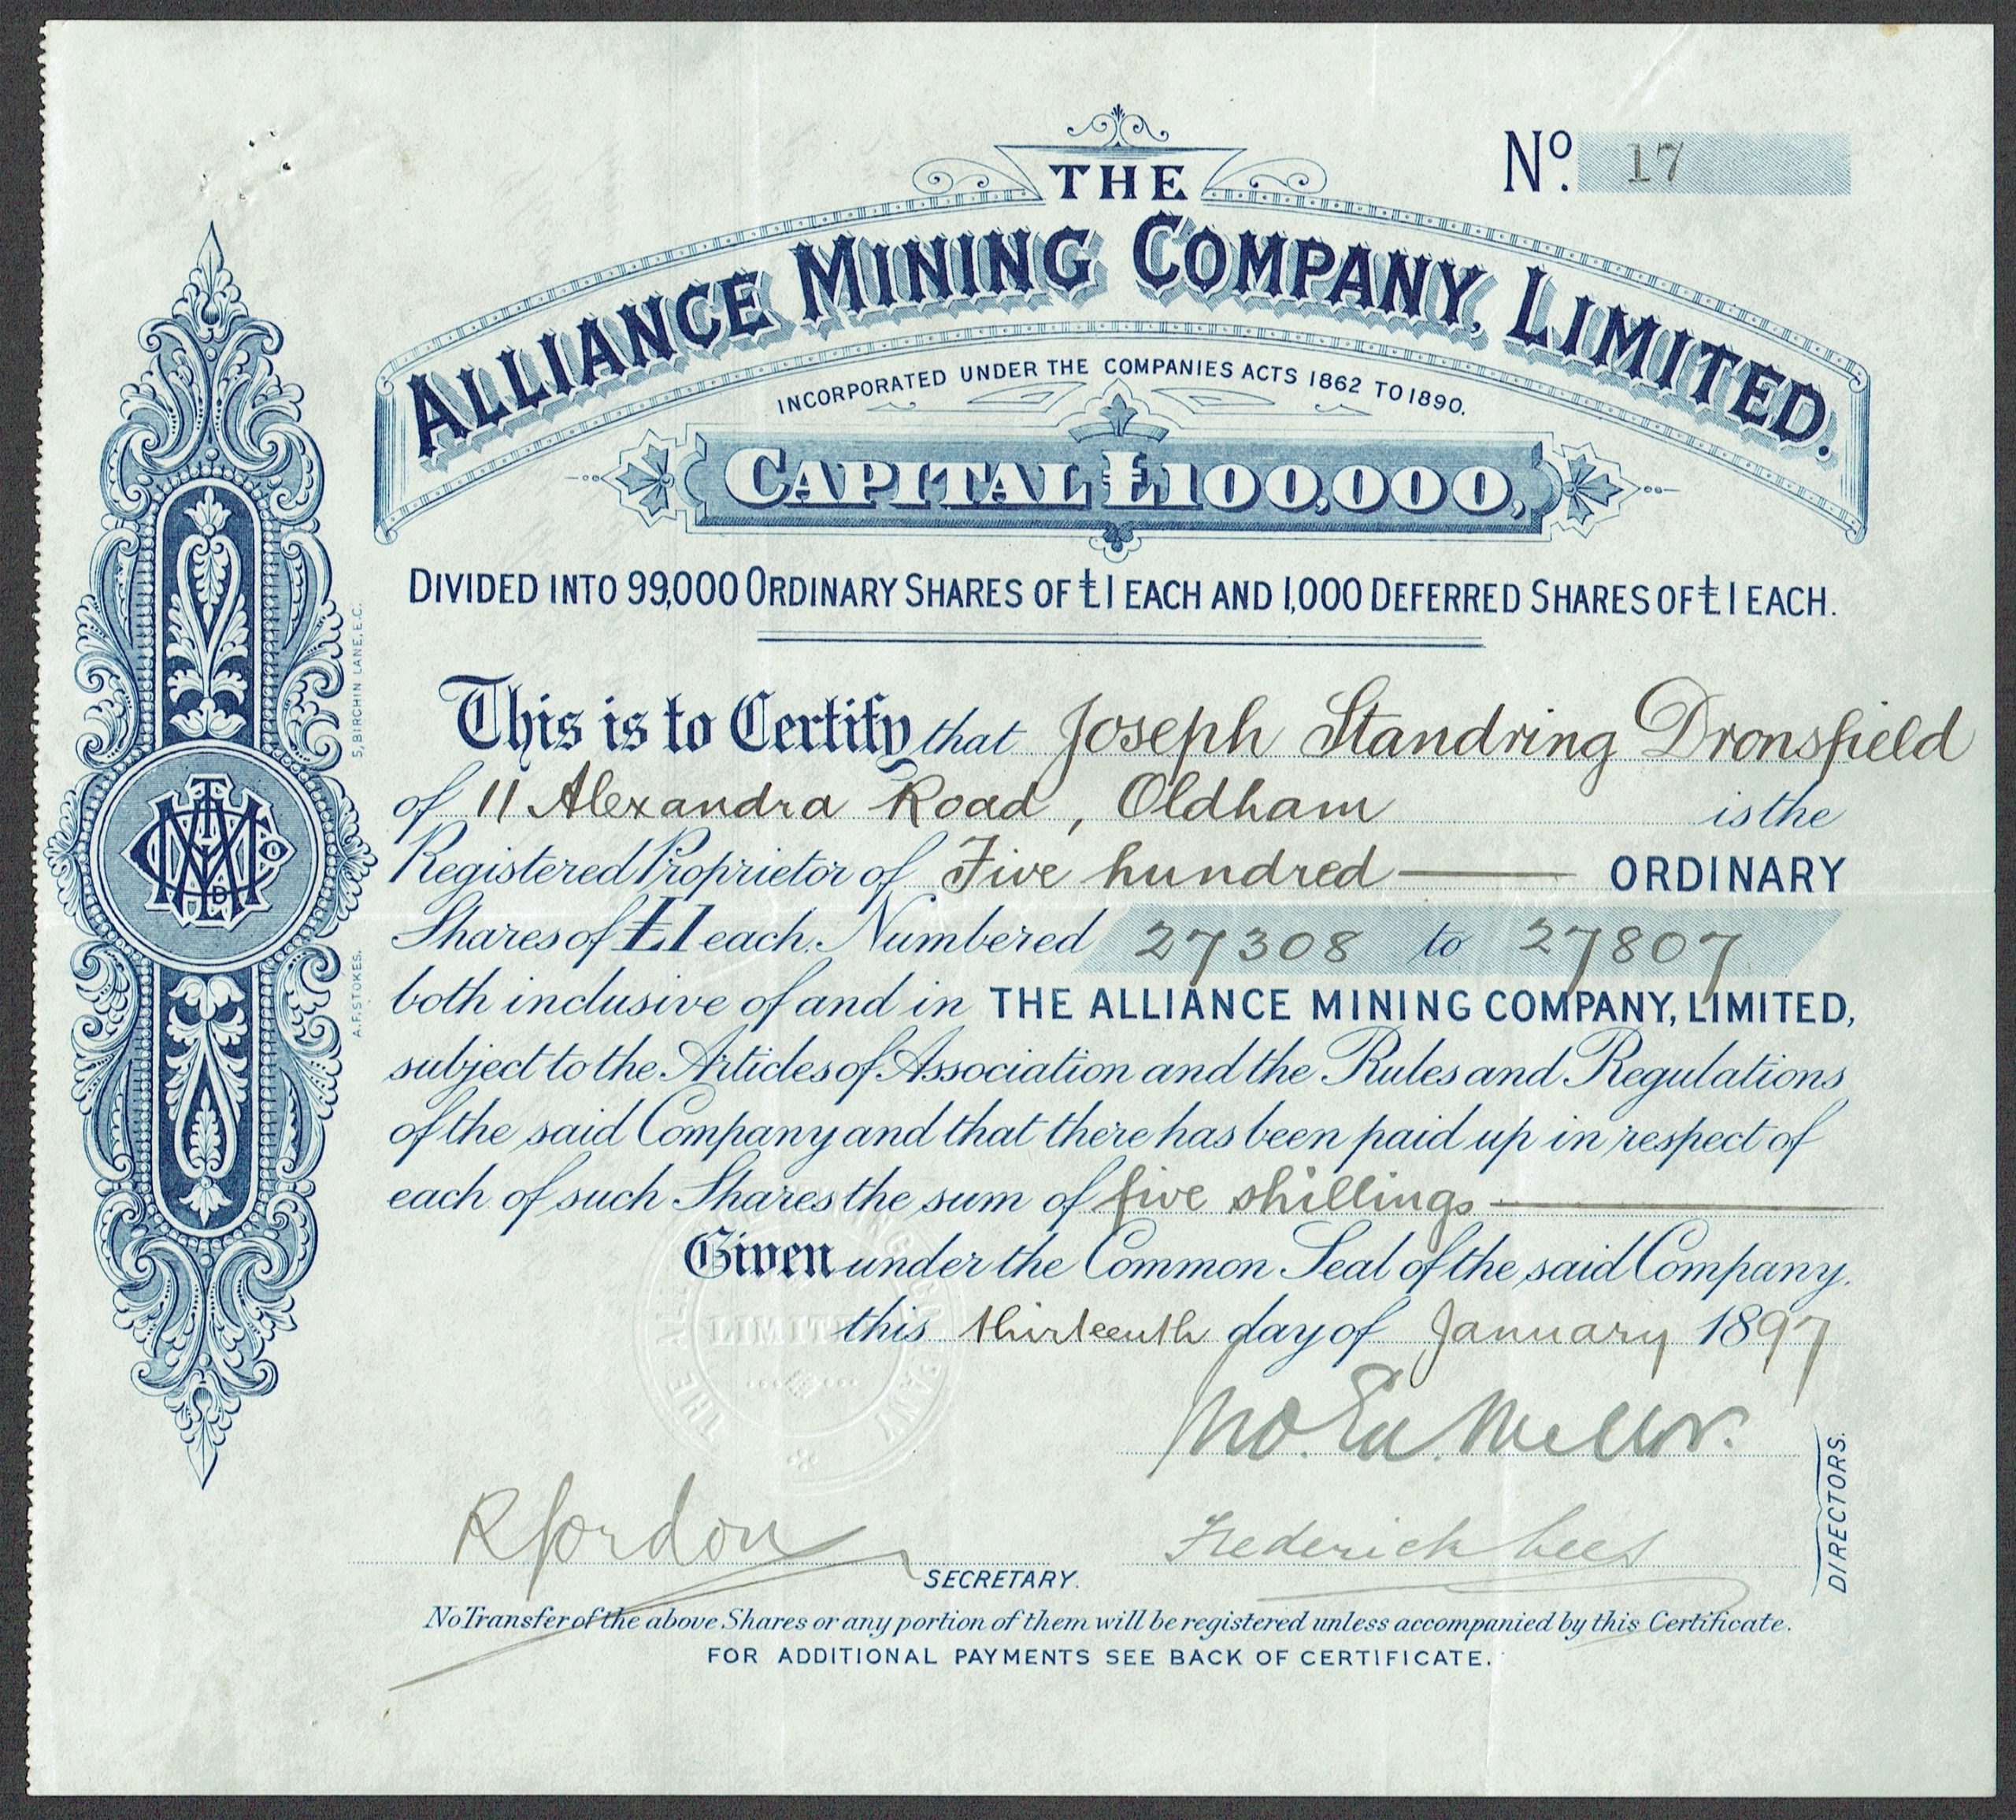 No. 17
THE
ALLIANCE MINING COMPANY, LIMITED.
INCORPORATED UNDER THE COMPANIES ACTS 1862 TO 1890.
CAPITAL £100,000,
DIVIDED INTO 99,000 ORDINARY SHARES OF £1 EACH AND 1,000 DEFERRED SHARES OF £1 EACH.
This is to Certify that Joseph Standring Dronsfield
of 11 Alexandra Road, Oldham is the
Registered Proprietor of Five hundred ORDINARY
Shares of £1 each. Numbered 27308 to 27807
both inclusive of and in THE ALLIANCE MINING COMPANY, LIMITED,
subject to the Articles of Association and the Rules and Regulations
of the said Company and that there has been paid up in respect of
each of such Shares the sum of five shillings
Given under the Common Seal of the said Company.
this thirteenth day of January 1897
Jno. Ed. Mellor.
R Gordon
Frederick Lees
SECRETARY.
DIRECTORS.
No Transfer of the above Shares or any portion of them will be registered unless accompanied by this Certificate.
FOR ADDITIONAL PAYMENTS SEE BACK OF CERTIFICATE.
A.F. STOKES. 5, BIRCHIN LANE, E.C.
THE
LIMITED